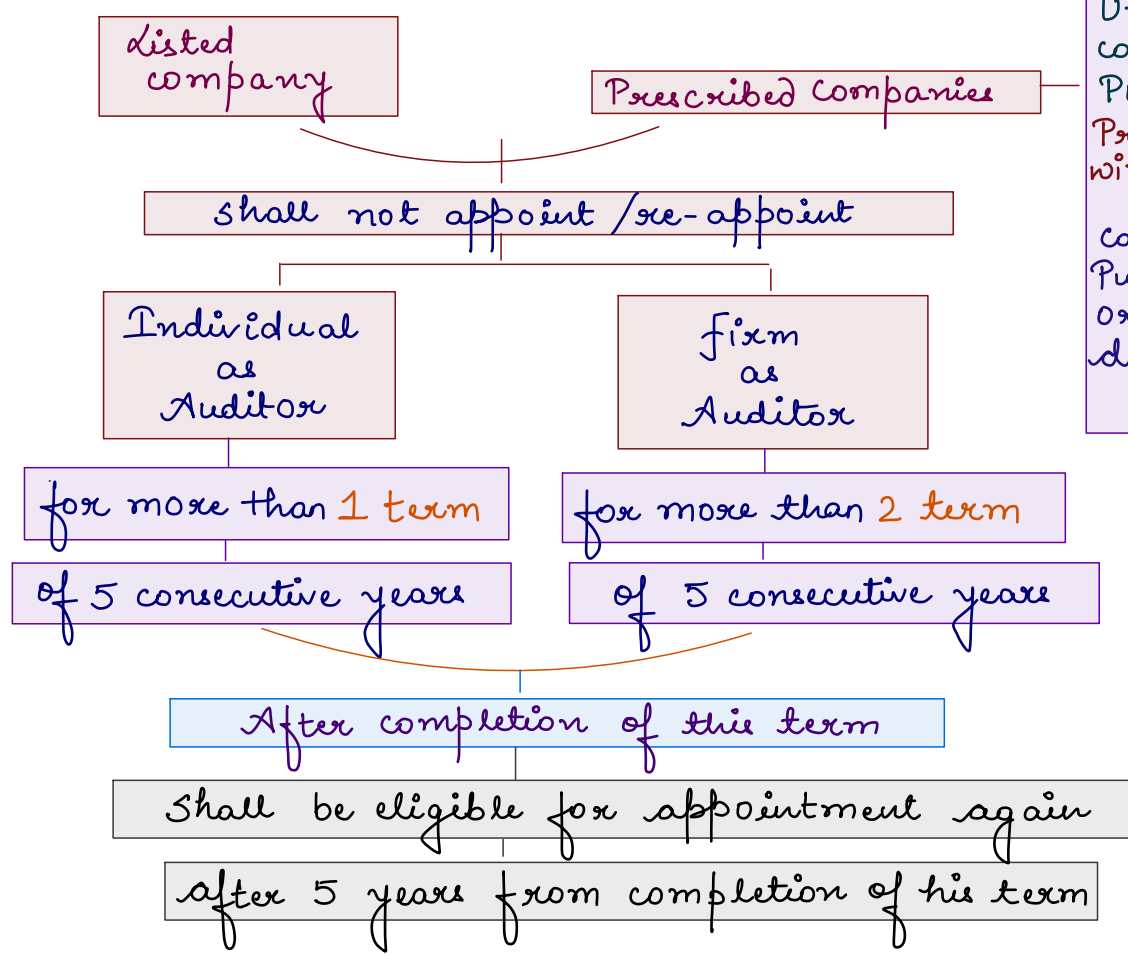 Listed
company
Prescribed companies
shall not appoint / re-appoint
Individual
as
Auditor
firm
as
Auditor
for more than 1 term
for more than 2 term
of 5 consecutive years
of 5 consecutive years
After completion of this term
shall be eligible for appointment again
after 5 years from completion of his term